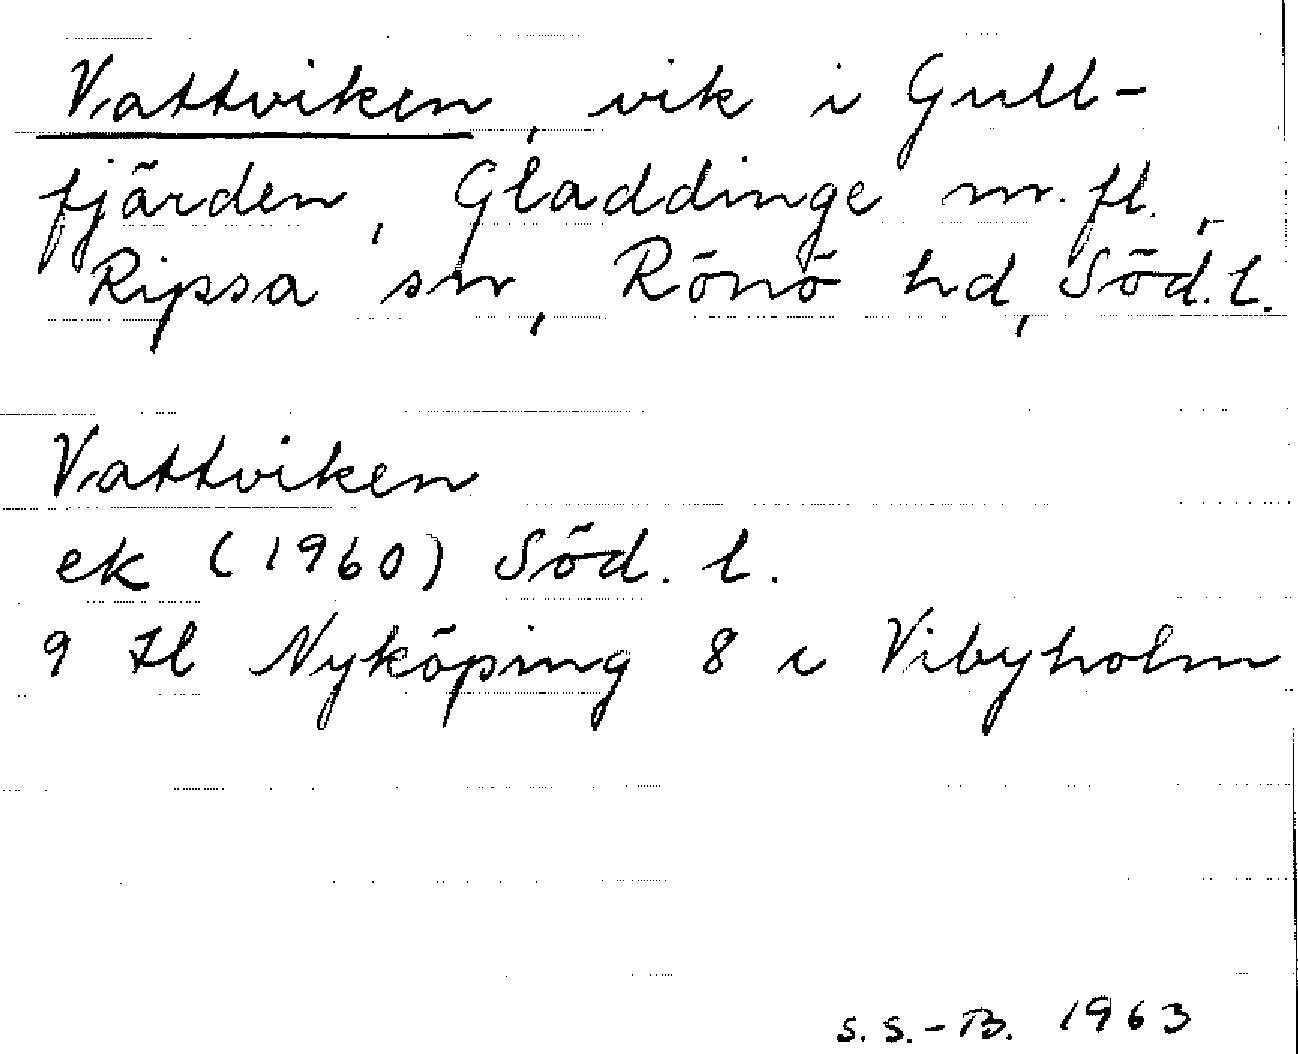 Vattviken, vik i Gull-
fjärden, Gladdinge m. fl.,
Ripsa sn, Rönö hd, Söd. l.
Vattviken
ek (1960) Söd. l.
9 H Nyköping 8 i Vibyholm
S. S.-B. 1963